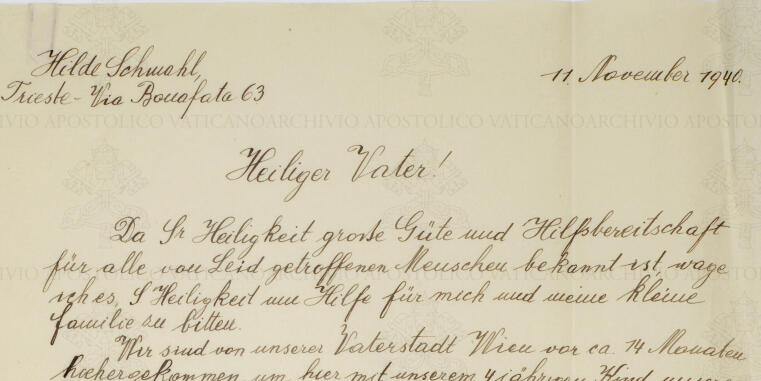 Hilde Schmahl,
11. November 1940.
Trieste - Via Bonafata 63
ARCHIVIO APOSTOLICO VATICANO
Heiliger Vater!
Da Sr Heiligkeit große Güte und Hilfsbereitschaft
für alle von Leid getroffenen Menschen bekannt ist, wage
ich es, S Heiligkeit um Hilfe für mich und meine kleine
Familie zu bitten.
Wir sind von unserer Vaterstadt Wien vor ca. 14 Monaten
hiehergekommen um hier mit unserem 4 jährigen Kind